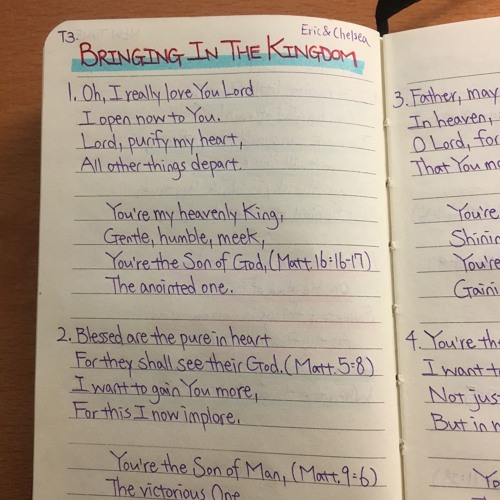 T3.
Eric & Chelsea
BRINGING IN THE KINGDOM
1. Oh, I really love You Lord
I open now to You.
Lord, purify my heart,
All other things depart.
You're my heavenly King,
Gentle, humble, meek,
You're the Son of God, (Matt. 16:16-17)
The anointed one.
2. Blessed are the pure in heart
For they shall see their God. (Matt. 5:8)
I want to gain You more,
For this I now implore.
You're the Son of Man, (Matt. 9:6)
The victorious One
3. Father, may
In heaven,
O Lord, for
That You
You're
Shinin
You're
Gaini
4. You're
I want
Not jus
But in